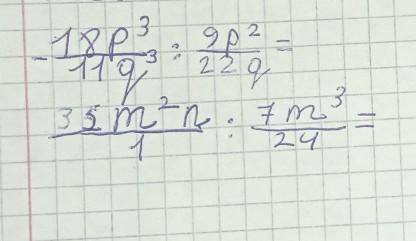 -18p³/11q³ : 9p²/22q =
35m²n/1 : 7m³/24 =